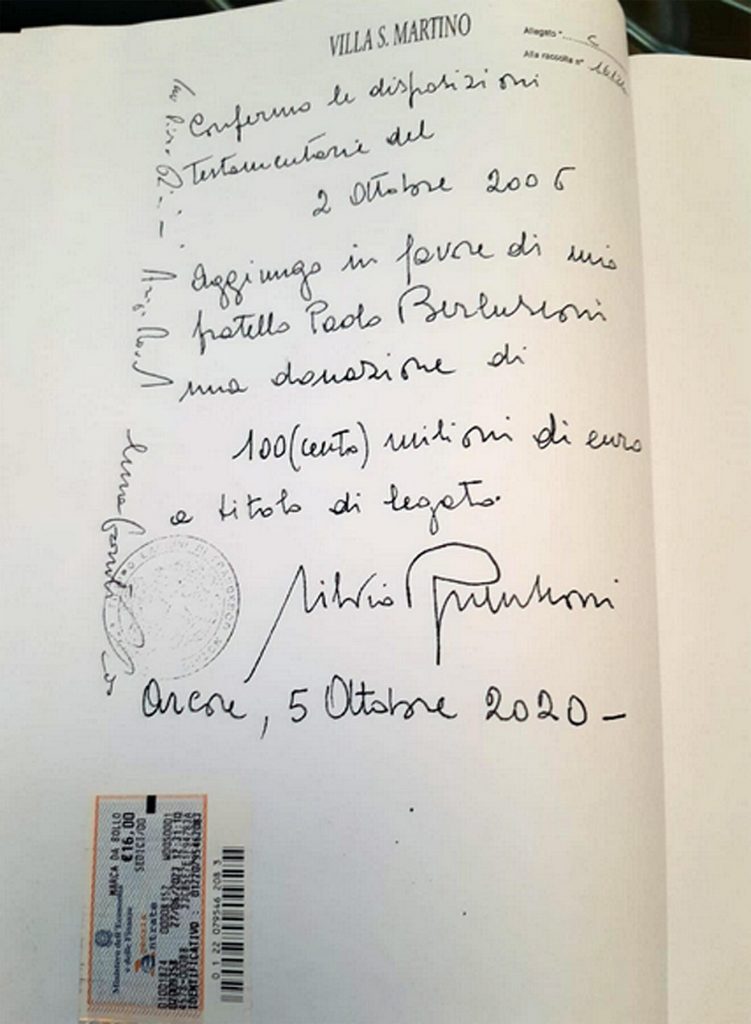 VILLA S. MARTINO
Allegato "C
Alla raccolta n°
Confermo le disposizioni
Testamentarie del
2 Ottobre 2006
Aggiungo in favore di mio
fratello Paolo Berlusconi
una donazione di
100 (cento) milioni di euro
a titolo di legato.
Silvio Berlusconi
Arcore, 5 Ottobre 2020 -
Ministero dell'Economia
e delle Finanze
MARCA DA BOLLO
€16,00
SEDICI/00
Agenzia
Entrate
IDENTIFICATIVO :
0 1 22 079546 208 3